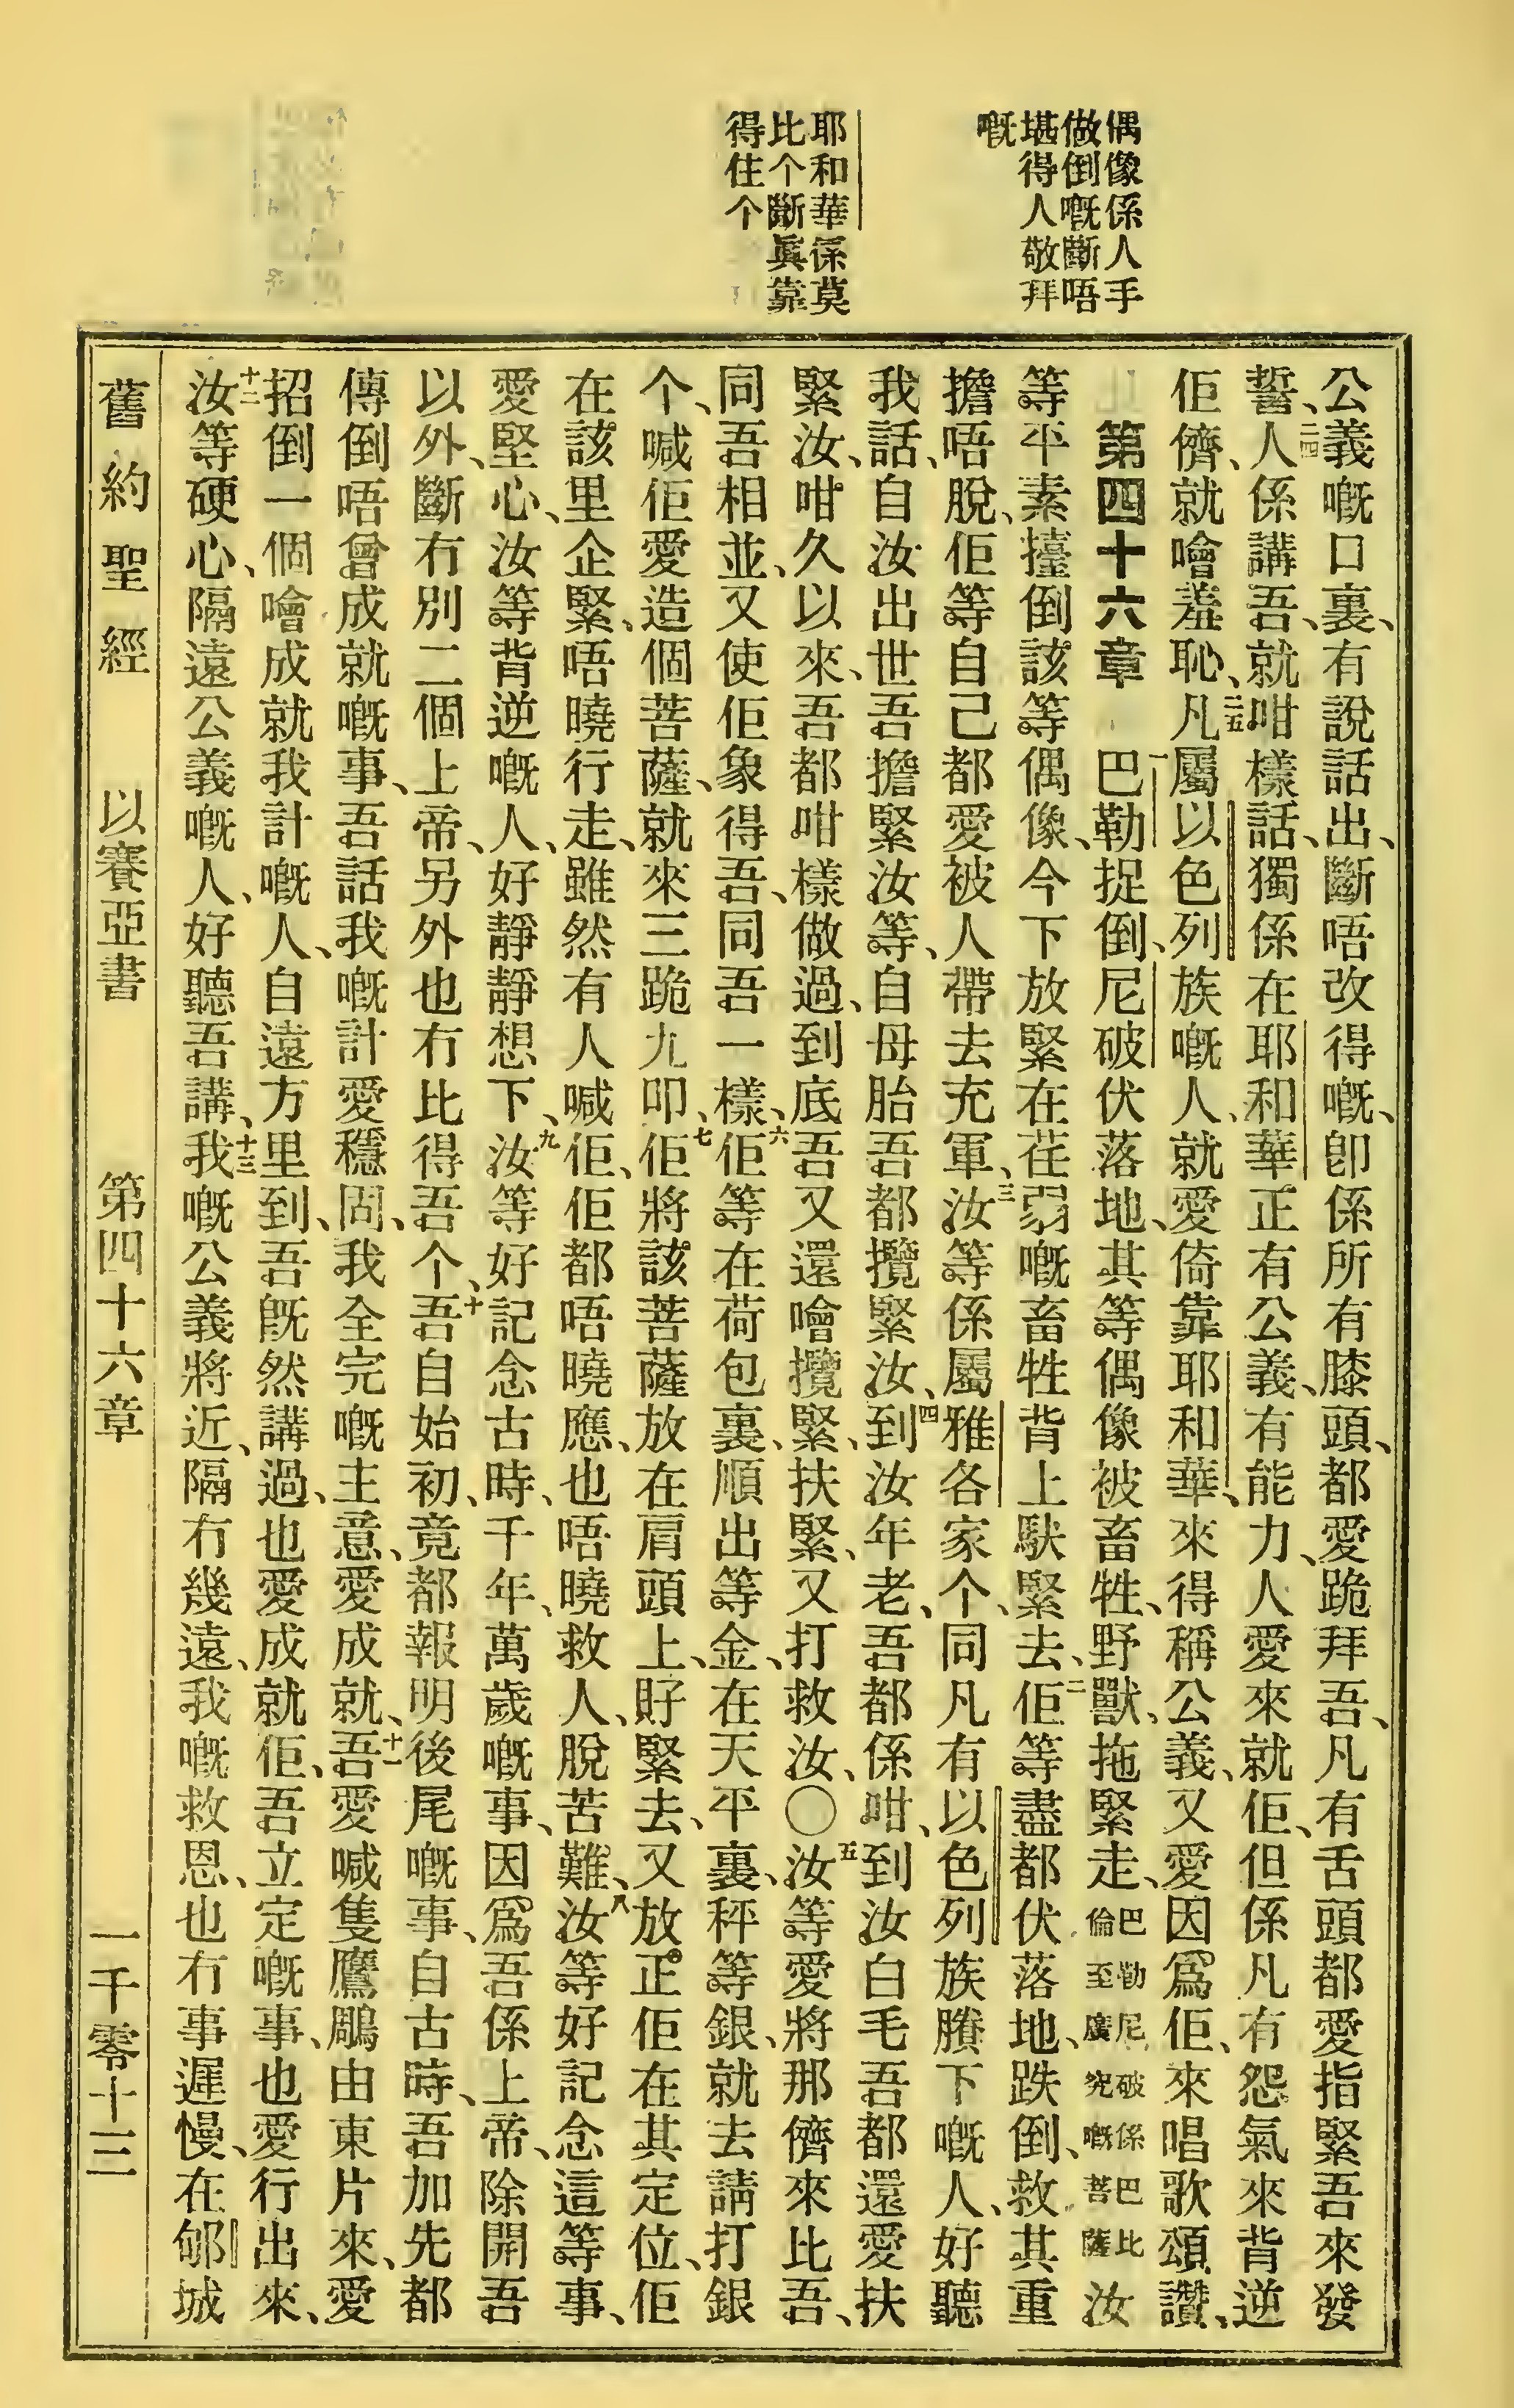 偶像係人手
做倒嘅斷唔
堪得人敬拜
嘅
耶和華係莫
比个斷眞靠
得住个
公義嘅口裏、有說話出、斷唔改得嘅、卽係所有膝頭、都愛跪拜吾、凡有舌頭都愛指緊吾來發
誓、二四人係講吾、就咁樣話、獨係在耶和華正有公義、有能力、人愛來就佢、但係凡有怨氣來背逆
佢儕、就噲羞恥、二五凡屬以色列族嘅人、就愛倚靠耶和華、來得稱公義、又愛因爲佢、來唱歌頌讚、
第四十六章 一巴勒捉倒、尼破伏落地、其等偶像被畜牲、野獸、拖緊走、巴勒尼破係巴比倫至廣兜嘅菩薩汝
等平素擡倒該等偶像、今下放緊在荏弱嘅畜牲背上馱緊去、二佢等盡都伏落地、跌倒、救其重
擔唔脫、佢等自己都愛被人帶去充軍、三汝等係屬雅各家个、同凡有以色列族賸下嘅人、好聽
我話、自汝出世吾擔緊汝等、自母胎吾都攬緊汝、四到汝年老、吾都係咁、到汝白毛吾都還愛扶
緊汝、咁久以來、吾都咁樣做過、到底吾又還噲攬緊、扶緊、又打救汝、〇五汝等愛將那儕來比吾、
同吾相並、又使佢象得吾、同吾一樣、六佢等在荷包裏、順出等金、在天平裏、秤等銀、就去請打銀
个、喊佢愛造個菩薩、就來三跪九叩、七佢將該菩薩放在肩頭上、㧌緊去、又放正佢在其定位、佢
在該里企緊、唔曉行走、雖然有人喊佢、佢都唔曉應、也唔曉救人、脫苦難、八汝等好記念這等事、
愛堅心、汝等背逆嘅人、好靜靜想下、九汝等好記念古時、千年、萬歲嘅事、因爲吾係上帝、除開吾
以外、斷冇別二個上帝、另外也冇比得吾个、十吾自始初、竟都報明後尾嘅事、自古時、吾加先都
傳倒唔曾成就嘅事、吾話我嘅計愛穩固、我全完嘅主意、愛成就、十一吾愛喊隻鷹鵰由東片來、愛
招倒一個噲成就我計嘅人、自遠方里到、吾旣然講過、也愛成就佢、吾立定嘅事、也愛行出來、
十二汝等硬心、隔遠公義嘅人、好聽吾講、十三我嘅公義將近、隔冇幾遠、我嘅救恩、也冇事遲慢、在郇城
舊約聖經 以賽亞書 第四十六章 一千零十三